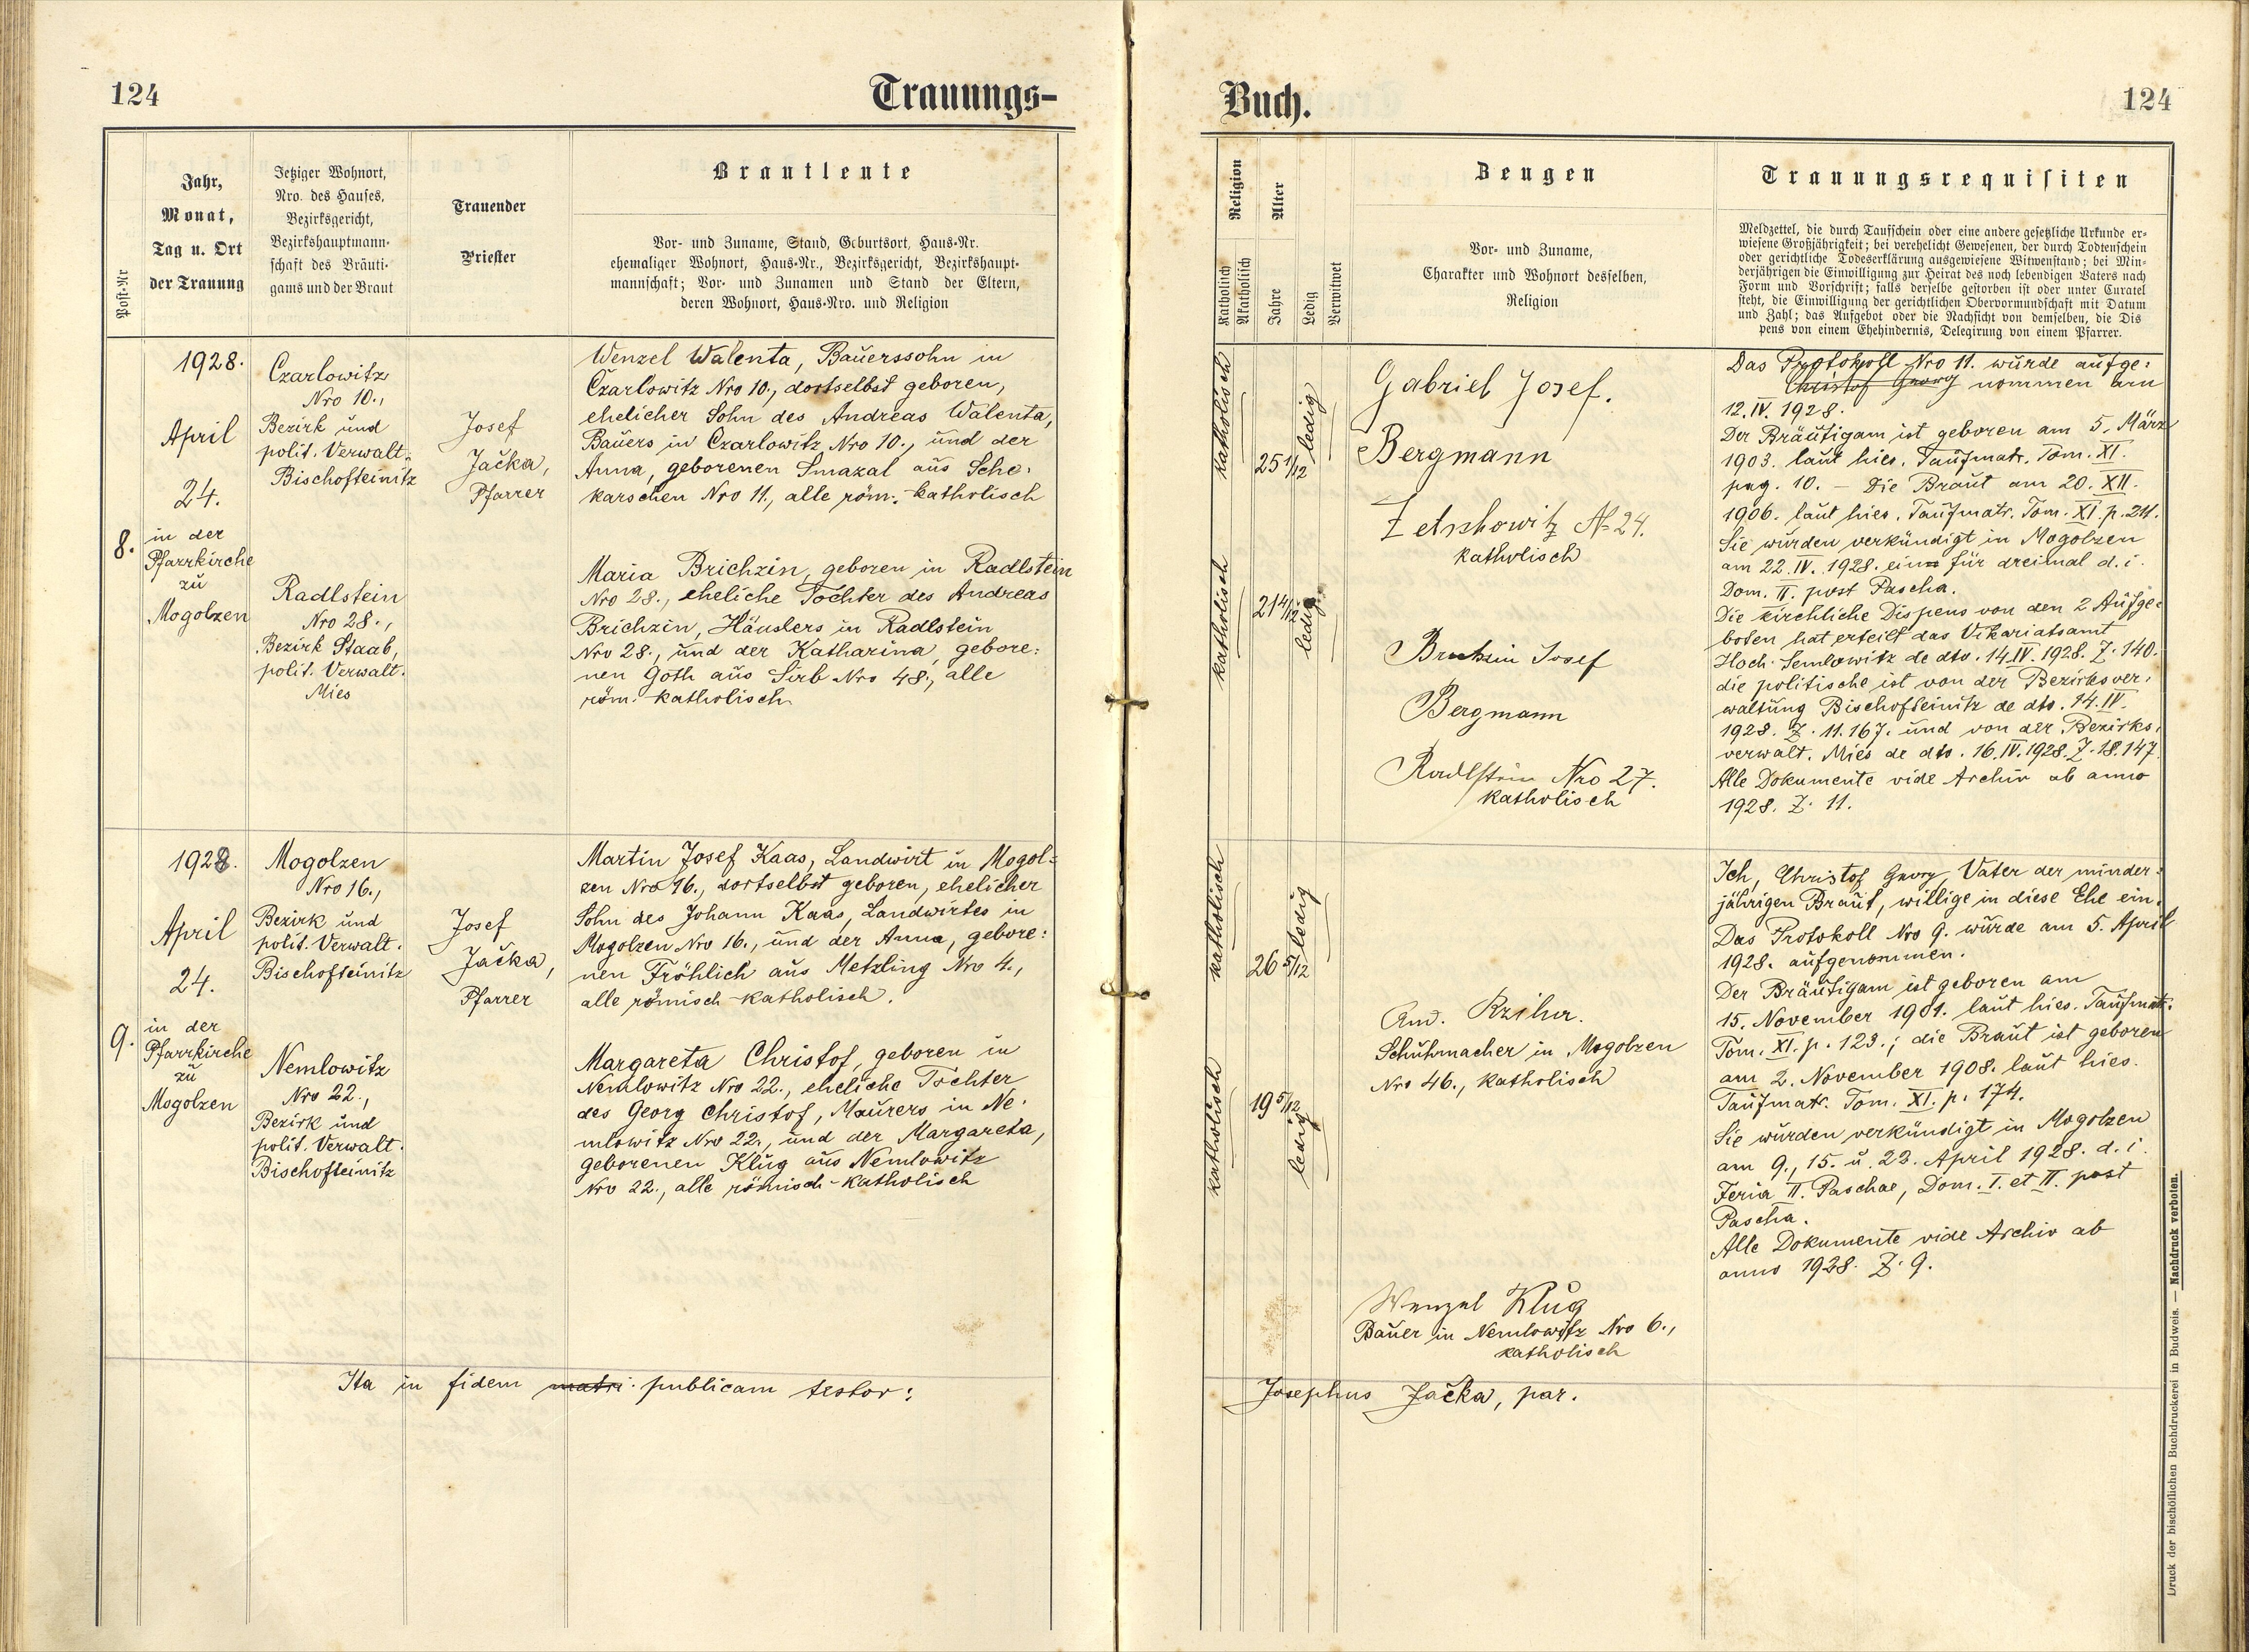 124
Trauungs-
Post-Nr
Jahr,
Monat,
Tag u. Ort
der Trauung
Jetziger Wohnort,
Nro. des Hauses,
Bezirksgericht,
Bezirkshauptmann-
schaft des Bräuti-
gams und der Braut
Trauender
Priester
Brautleute
Vor- und Zuname, Stand, Geburtsort, Haus-Nr.
ehemaliger Wohnort, Haus-Nr., Bezirksgericht, Bezirkshaupt-
mannschaft; Vor- und Zunamen und Stand der Eltern,
deren Wohnort, Haus-Nro. und Religion
8.
1928.
April
24.
in der
Pfarrkirche
zu
Mogolzen
Czarlowitz
Nro 10.,
Bezirk und
polit. Verwalt.
Bischofteinitz
Radlstein
Nro 28.,
Bezirk Staab,
polit. Verwalt.
Mies
Josef
Jačka,
Pfarrer
Wenzel Walenta, Bauerssohn in
Czarlowitz Nro 10., dortselbst geboren,
ehelicher Sohn des Andreas Walenta,
Bauers in Czarlowitz Nro 10., und der
Anna, geborenen Smazal aus Sche:
karschen Nro 11., alle röm.-katholisch
Maria Brichzin, geboren in Radlstein
Nro 28., eheliche Tochter des Andreas
Brichzin, Häuslers in Radlstein
Nro 28., und der Katharina, gebore:
nen Goth aus Sirb Nro 48., alle
röm. katholisch
9.
1928.
April
24.
in der
Pfarrkirche
zu
Mogolzen
Mogolzen
Nro 16.,
Bezirk und
polit. Verwalt.
Bischofteinitz
Nemlowitz
Nro 22.,
Bezirk und
polit. Verwalt.
Bischofteinitz
Josef
Jačka,
Pfarrer
Martin Josef Kaas, Landwirt in Mogol=
zen Nro 16., dortselbst geboren, ehelicher
Sohn des Johann Kaas, Landwirtes in
Mogolzen Nro 16., und der Anna, gebore:
nen Fröhlich aus Metzling Nro 4.,
alle römisch-katholisch.
Margareta Christof, geboren in
Nemlowitz Nro 22., eheliche Tochter
des Georg Christof, Maurers in Ne:
mlowitz Nro 22., und der Margareta,
geborenen Klug aus Nemlowitz
Nro 22., alle römisch-katholisch
Ita in fidem matri. publicam testor:
Buch.
124
Religion
Katholisch
Akatholisch
Alter
Jahre
Ledig
Verwitwet
Zeugen
Vor- und Zuname,
Charakter und Wohnort desselben,
Religion
Trauungsrequisiten
Meldzettel, die durch Taufschein oder eine andere gesetzliche Urkunde er-
wiesene Großjährigkeit; bei verehelicht Gewesenen, der durch Todtenschein
oder gerichtliche Todeserklärung ausgewiesene Witwenstand; bei Min-
derjährigen die Einwilligung zur Heirat des noch lebendigen Vaters nach
Form und Vorschrift; falls derselbe gestorben ist oder unter Curatel
steht, die Einwilligung der gerichtlichen Obervormundschaft mit Datum
und Zahl; das Aufgebot oder die Nachsicht von demselben, die Dis
pens von einem Ehehindernis, Delegirung von einem Pfarrer.
katholisch
25 1/12
ledig
katholisch
21 4/12
ledig
Gabriel Josef.
Bergmann
Zetschowitz № 24.
katholisch
Brichzin Josef
Bergmann
Radlstein Nro 27.
katholisch
Das Protokoll Nro 11. wurde aufge:
Christof Georg nommen am
12. IV. 1928.
Der Bräutigam ist geboren am 5. März
1903. laut hies. Taufmatr. Tom. XI.
pag. 10. – Die Braut am 20. XII.
1906. laut hies. Taufmatr. Tom. XI. p. 211.
Sie wurden verkündigt in Mogolzen
am 22. IV. 1928. ein für dreimal d. i.
Dom. II. post Pascha.
Die kirchliche Dispens von den 2 Aufge:
boten hat erteilt das Vikariatsamt
Hoch-Semlowitz de dto. 14. IV. 1928. Z. 140.
die politische ist von der Bezirksver:
waltung Bischofteinitz de dto. 14. IV.
1928. Z. 11.167. und von der Bezirks:
verwalt. Mies de dto. 16. IV. 1928. Z. 18.147.
Alle Dokumente vide Archiv ab anno
1928. Z. 11.
katholisch
26 5/12
ledig
katholisch
19 5/12
ledig
And. Rziha.
Schuhmacher in Mogolzen
Nro 46., katholisch
Wenzel Klug
Bauer in Nemlowitz Nro 6.,
katholisch
Ich, Christof Georg, Vater der minder:
jährigen Braut, willige in diese Ehe ein.
Das Protokoll Nro 9. wurde am 5. April
1928. aufgenommen.
Der Bräutigam ist geboren am
15. November 1901. laut hies. Taufmatr.
Tom. XI. p. 123.; die Braut ist geboren
am 2. November 1908. laut hies.
Taufmatr. Tom. XI. p. 174.
Sie wurden verkündigt in Mogolzen
am 9., 15. u. 22. April 1928. d. i.
Feria II. Paschae, Dom. I. et II. post
Pascha.
Alle Dokumente vide Archiv ab
anno 1928. Z. 9.
Josephus Jačka, par.
Druck der bischöflichen Buchdruckerei in Budweis. — Nachdruck verboten.